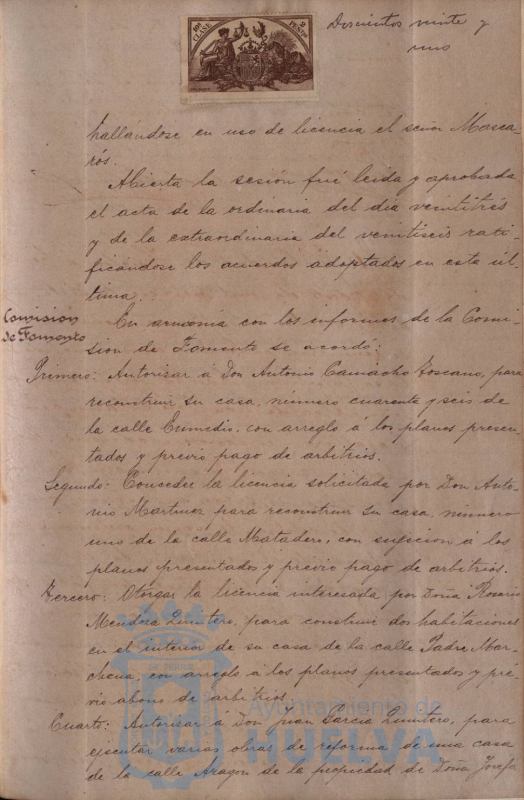 Doscientos veinte y
uno
10ª CLASE
2 PESETAS
hallándose en uso de licencia el señor Masca-
rós.
Abierta la sesión fué leida y aprobada
el acta de la ordinaria del dia veintitrés
y de la extraordinaria del veintiseis rati-
ficándose los acuerdos adoptados en esta úl-
tima.
Comision
de Fomento
En armonía con los informes de la Comi-
sion de Fomento se acordó:
Primero: Autorizar á Don Antonio Camacho Toscano, para
reconstruir su casa, número cuarenta y seis de
la calle Enmedio, con arreglo á los planos presen-
tados y previo pago de arbitrios.
Segundo: Conceder la licencia solicitada por Don Anto-
nio Martinez para reconstruir su casa, número
uno de la calle Matadero, con sujecion á los
planos presentados y previo pago de arbitrios.
Tercero: Otorgar la licencia interesada por Doña Rosario
Mendoza Quintero, para construir dos habitaciones
en el interior de su casa de la calle Padre Mar-
chena, con arreglo á los planos presentados y pré-
vio abono de arbitrios.
Cuarto: Autorizar á Don Juan Garcia Quintero, para
ejecutar varias obras de reforma de una casa
de la calle Aragon de la propiedad de Doña Josefa
Ayuntamiento de
HUELVA